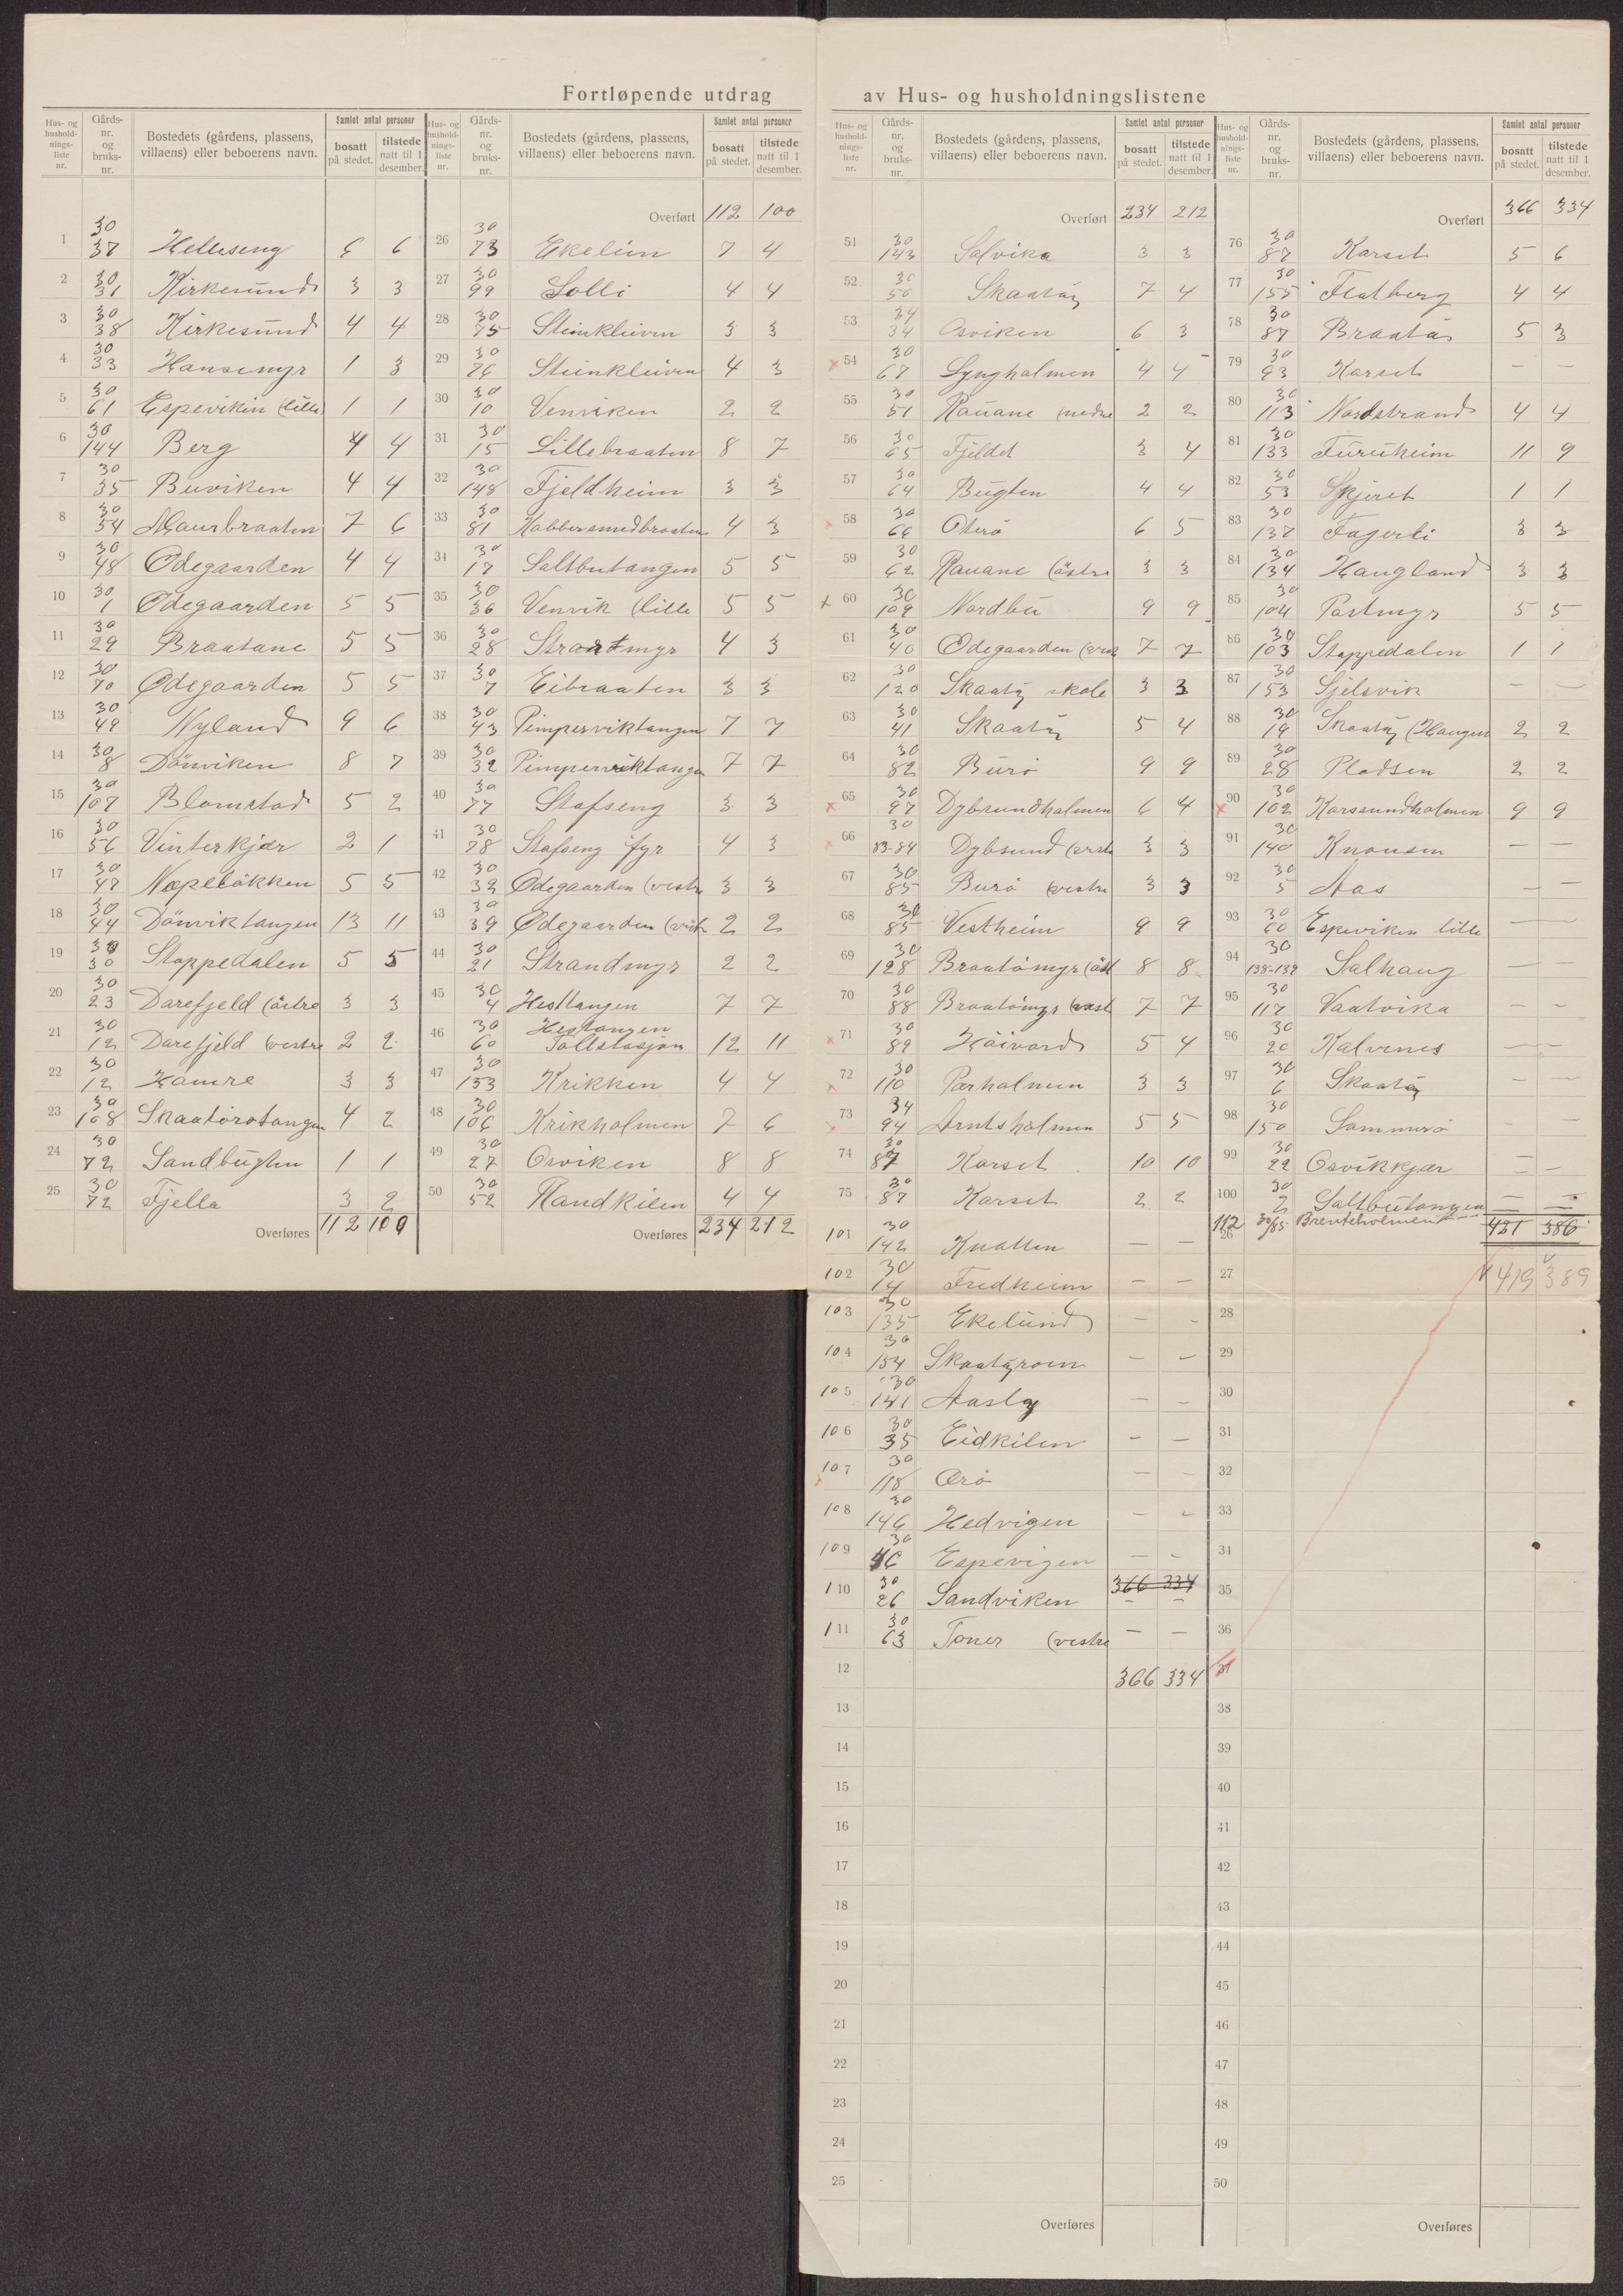 Fortløpende utdrag av Hus- og husholdningslistene
Hus- og hushold-nings-liste nr.
Gårds-nr. og bruks-nr.
Bostedets (gårdens, plassens, villaens) eller beboerens navn.
Samlet antal personer
bosatt på stedet.
tilstede natt til 1 desember.
1 30/37 Helleseng 6 6
2 30/31 Kirkesund 3 3
3 30/38 Kirkesund 4 4
4 30/33 Hansemyr 1 3
5 30/61 Espevikin (lille 1 1
6 30/144 Berg 4 4
7 30/35 Buviken 4 4
8 30/54 Maurbraaten 7 6
9 30/48 Ødegaarden 4 4
10 30/1 Ødegaarden 5 5
11 30/29 Braatane 5 5
12 30/70 Ødegaarden 5 5
13 30/49 Nyland 9 6
14 30/8 Dönviken 8 7
15 30/107 Blomstad 5 2
16 30/56 Vinterkjær 2 1
17 30/47 Næpeløkken 5 5
18 30/44 Dönviktangen 13 11
19 30/30 Stoppedalen 5 5
20 30/23 Darefjeld (östre 3 3
21 30/12 Darefjeld (vestre 2 2
22 30/12 Hamre 3 3
23 30/108 Skaatörotangen 4 2
24 30/72 Sandbugten 1 1
25 30/72 Fjella 3 2
Overføres 112 100
Overført 112 100
26 30/73 Ekelün 7 4
27 30/99 Solli 4 4
28 30/75 Steinkleiven 3 3
29 30/76 Steinkleiven 4 3
30 30/10 Venviken 2 2
31 30/15 Lillebraaten 8 7
32 30/148 Fjeldheim 3 3
33 30/81 Kobbersmedbraaten 4 3
34 30/17 Saltbutangen 5 5
35 30/36 Venvik (lille 5 5
36 30/28 Strandmyr 4 3
37 30/7 Eibraaten 3 3
38 30/43 Pimperviktangen 7 7
39 30/32 Pimperviktangen 7 7
40 30/77 Stafseng 3 3
41 30/78 Stafseng fyr 4 3
42 30/32 Ødegaarden (vestre 3 3
43 30/39 Ødegaarden 2 2
44 30/21 Strandmyr 2 2
45 30/4 Hesttangen 7 7
46 30/60 Hestangen Tollstasjon 12 11
47 30/153 Krikken 4 4
48 30/106 Krikholmen 7 6
49 30/27 Osviken 8 8
50 30/52 Randkilen 4 4
Overføres 234 212
Overført 234 212
51 30/143 Solvika 3 3
52 30/50 Skaatøy 7 4
53 34/34 Osviken 6 3
54 30/67 Lyngholmen 4 4
55 30/51 Rauane (nedre 2 2
56 30/65 Fjeldet 3 4
57 30/64 Bugten 4 4
58 30/66 Oterö 6 5
59 30/62 Rauane (östre 3 3
60 30/109 Nordbu 9 9
61 30/40 Ødegaarden (vest 7 7
62 30/120 Skaatøy skole 3 3
63 30/41 Skaatøy 5 4
64 30/82 Burö 9 9
65 30/97 Dybsundholmen 6 4
66 30/83-84 Dybsund 3 3
67 30/85 Burö (vestre 3 3
68 30/85 Vestheim 9 9
69 30/128 Braatömyr (öst 8 8
70 30/88 Braatömyr (vest 7 7
71 30/89 Höivard 5 4
72 30/110 Parholmen 3 3
73 34/94 Arntsholmen 5 5
74 30/87 Korset 10 10
75 30/87 Korset 2 2
101 30/142 Knatten — —
102 30/14 Fredheim — —
103 30/135 Ekelund — —
104 30/154 Skaatøyroen — —
105 30/141 Aasly — —
106 30/35 Eidkilen — —
107 30/118 Ærö — —
108 30/146 Hedvigen — —
109 30/46 Espevigen — —
366 334
110 30/26 Sandviken — —
111 30/63 Toner (vestre — —
12 366 334
13
14
15
16
17
18
19
20
21
22
23
24
25
Overføres
Overført 366 334
76 30/87 Korset 5 6
77 30/155 Flatberg 4 4
78 30/87 Braatøa 5 3
79 30/93 Korset — —
80 30/113 Nordstrand 4 4
81 30/133 Furuheim 11 9
82 30/53 Skjæret 1 1
83 30/137 Fagerli 3 3
84 30/134 Haugland 3 3
85 30/104 Postmyr 5 5
86 30/103 Stoppedalen 1 1
87 30/153 Sjelsvik — —
88 30/19 Skaatøy (Haugen 2 2
89 30/28 Pladsen 2 2
90 30/102 Korssundholmen 9 9
91 30/140 Knausen — —
92 30/5 Aas — —
93 30/60 Espeviken lille — —
94 30/138-139 Solhaug — —
95 30/117 Vaatvika — —
96 30/20 Kalvenes — —
97 30/6 Skaatøy — —
98 30/150 Sommerö — —
99 30/22 Osvikkjær — —
100 30/2 Saltbutangen — —
112 30/65 Brenteholmen — —
26 421 386
27 419 389
28
29
30
31
32
33
34
35
36
37
38
39
40
41
42
43
44
45
46
47
48
49
50
Overføres